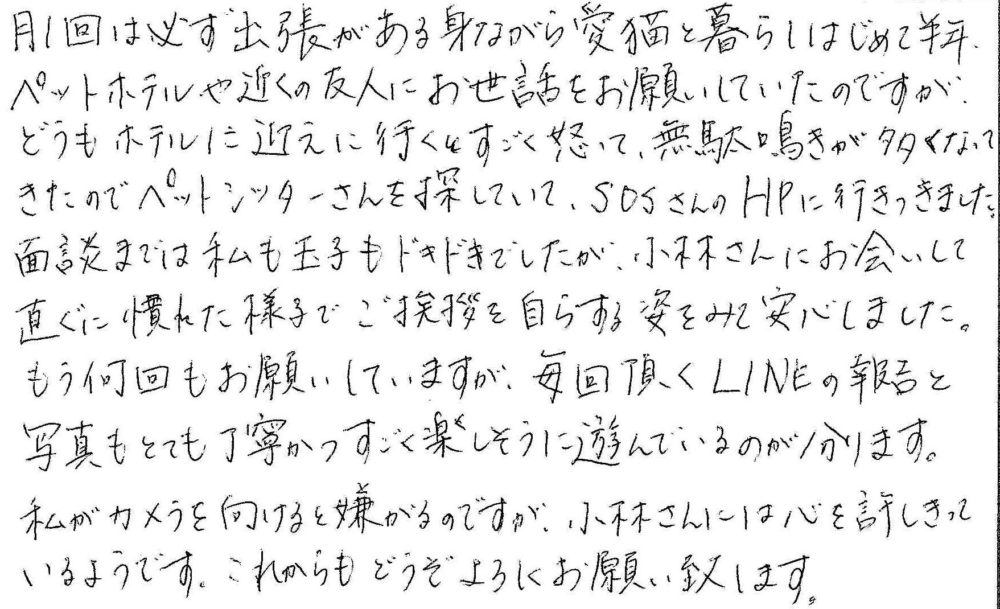 月1回は必ず出張がある身ながら愛猫と暮らしはじめて半年、
ペットホテルや近くの友人にお世話をお願いしていたのですが、
どうもホテルに迎えに行くとすごく怒って、無駄鳴きが多くなって
きたのでペットシッターさんを探していて、SOSさんのHPに行きつきました。
面談までは私も玉子もドキドキでしたが、小林さんにお会いして
直ぐに慣れた様子でご挨拶を自らする姿をみて安心しました。
もう何回もお願いしていますが、毎回頂くLINEの報告と
写真もとても丁寧かつすごく楽しそうに遊んでいるのが分ります。
私がカメラを向けると嫌がるのですが、小林さんには心を許しきって
いるようです。これからもどうぞよろしくお願い致します。